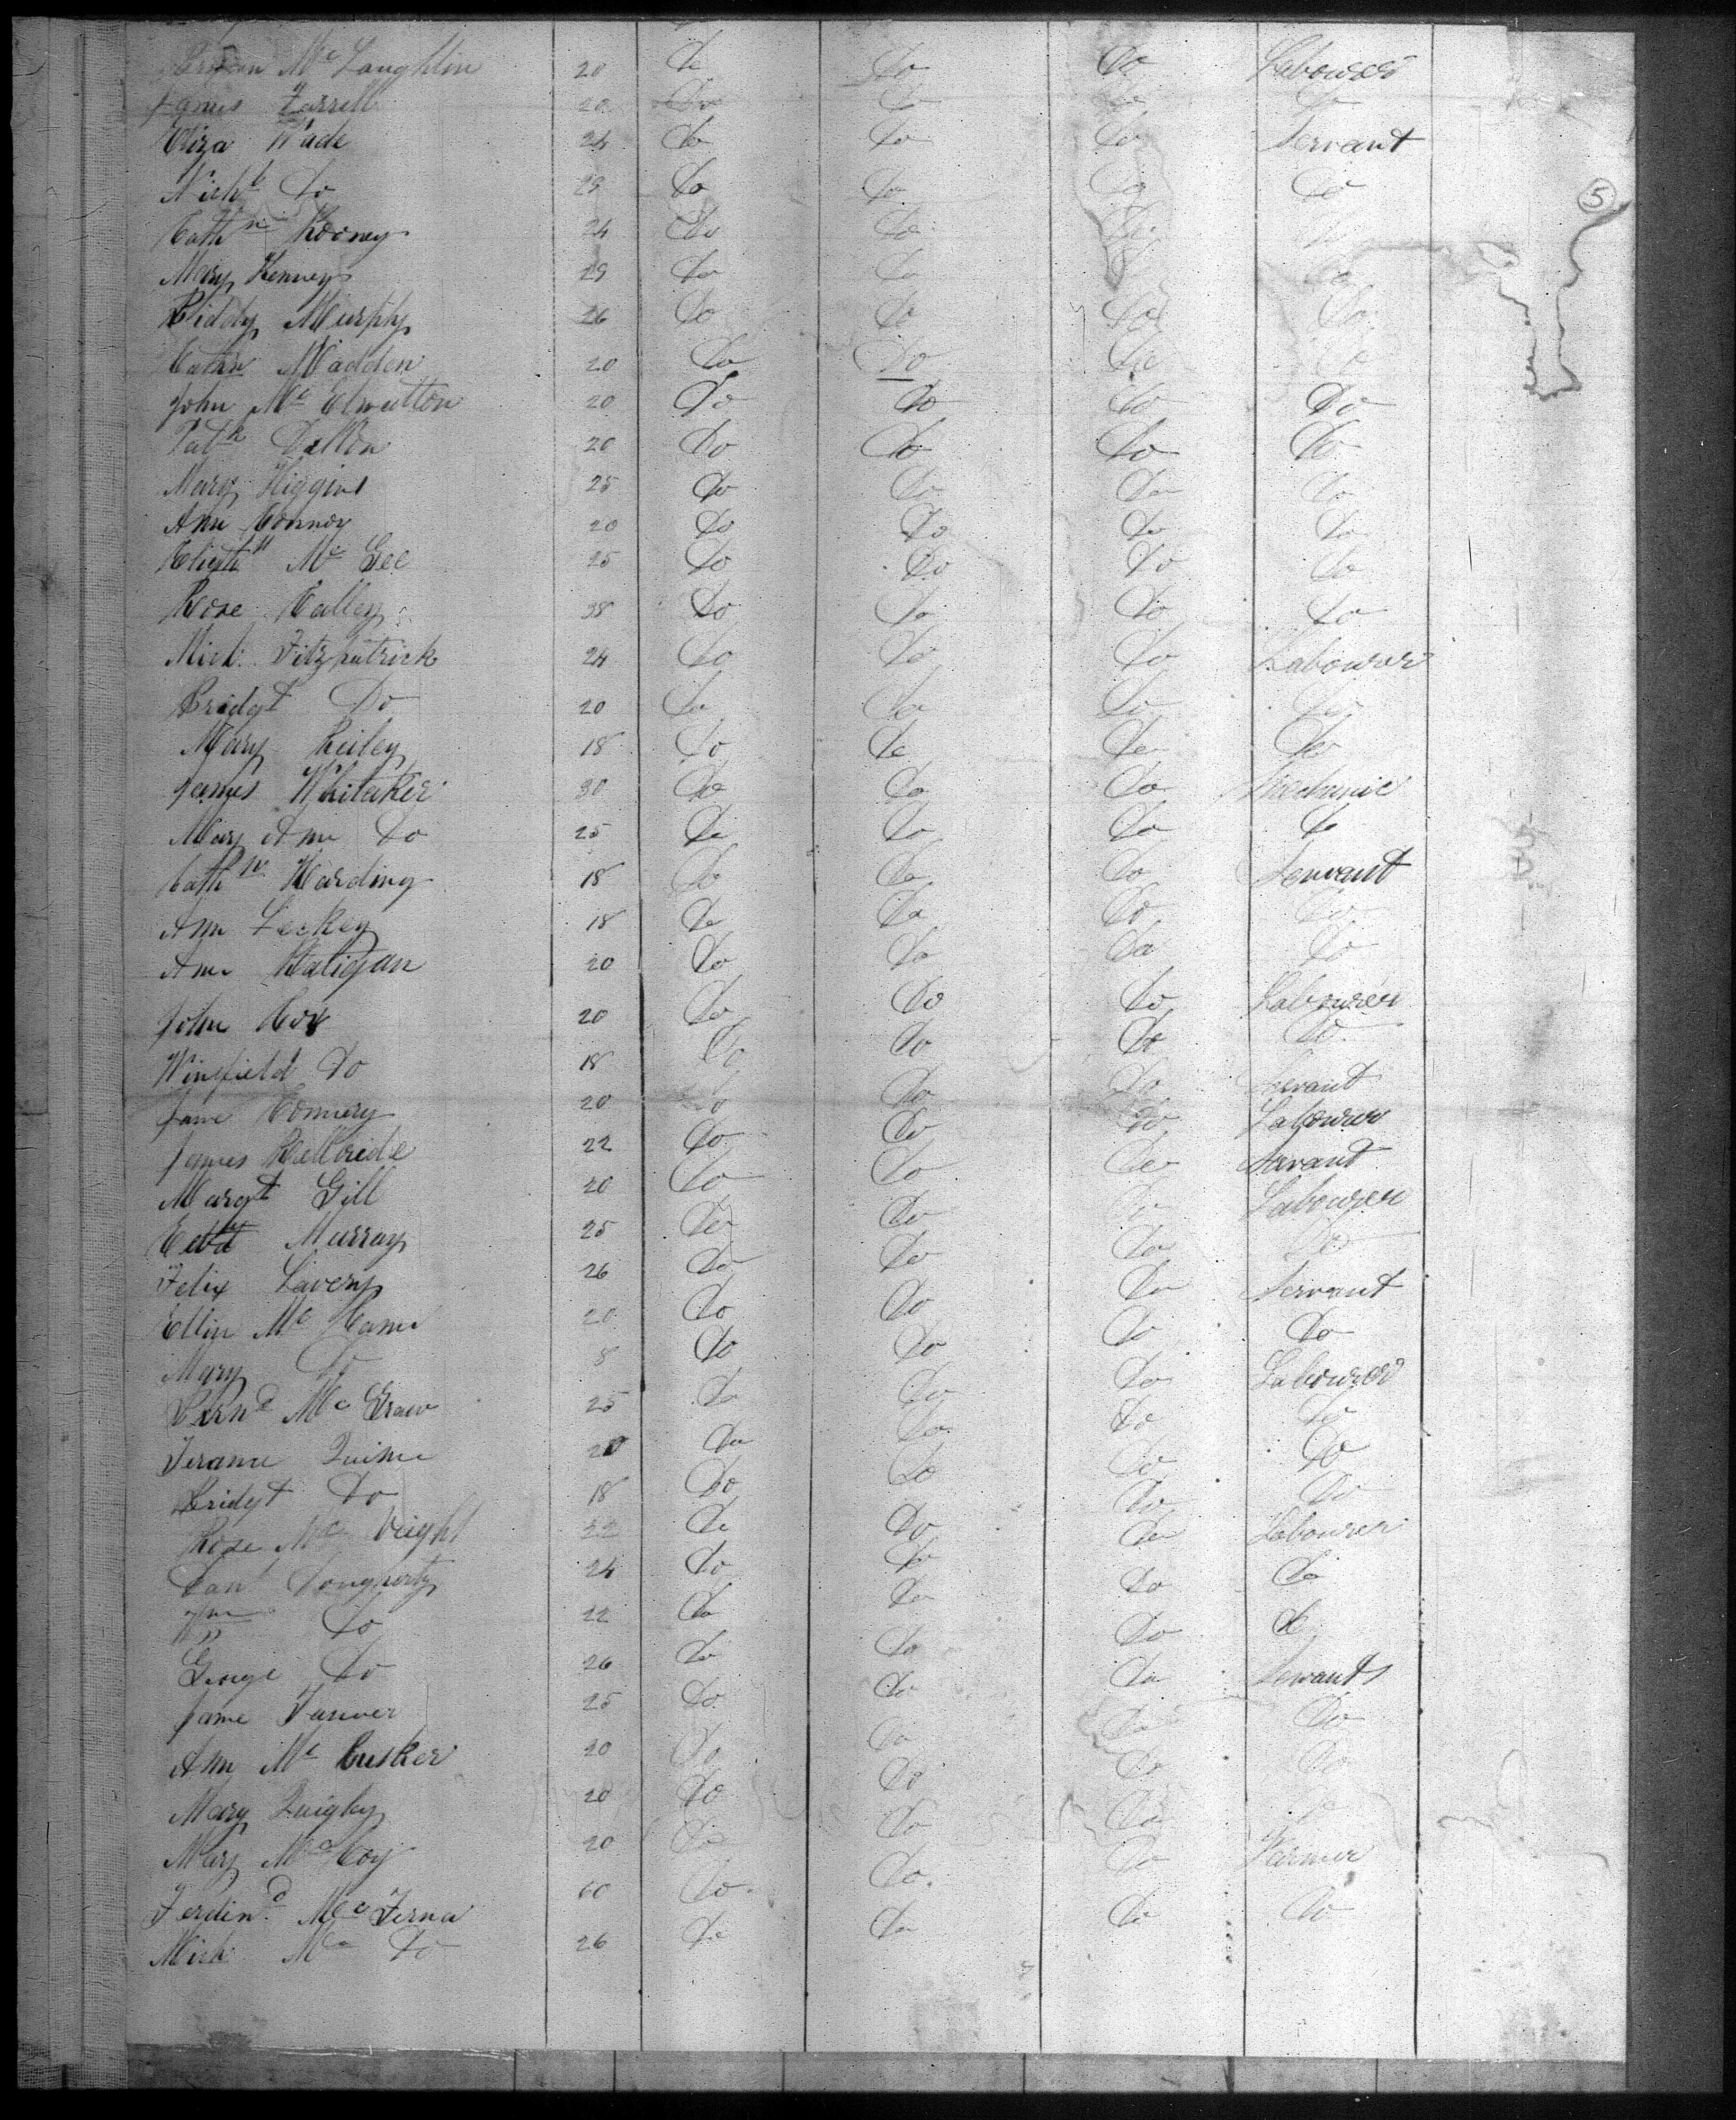 Mc Laughlin 20 Do Do Do Labourer
James Farrell 20 Do Do Do Do
Eliza Wade 24 Do Do Do Servant
Nichs Do 23 Do Do Do Do
Cathne Rooney 24 Do Do Do Do
Mary Kenney 29 Do Do Do Do
Biddy Murphy 26 Do Do Do Do
Cathn Madden 20 Do Do Do Do
John Mc 20 Do Do Do Do
Patk Dalton 20 Do Do Do Do
Mary Higgins 25 Do Do Do Do
Ann Connor 20 Do Do Do Do
Mc Gee 25 Do Do Do Do
Rose Calley 38 Do Do Do Do
Mich. Fitzpatrick 24 Do Do Do Labourer
Bridgt Do 20 Do Do Do Do
Mary Reiley 18 Do Do Do Do
James Whitaker 30 Do Do Do Mechanic
Mary Ann Do 25 Do Do Do Do
Cathne Harding 18 Do Do Do Servant
Ann Leckey 18 Do Do Do Do
Ann Haligan 20 Do Do Do Do
John Cox 20 Do Do Do Labourer
Winifield Do 18 Do Do Do Do
Jane Connery 20 Do Do Do Servant
James Kellbride 22 Do Do Do Labourer
Margt Gill 20 Do Do Do Servant
Edwd Murray 25 Do Do Do Labourer
Felix Lavery 26 Do Do Do Do
Ellin Mc 20 Do Do Do Servant
Mary Do 8 Do Do Do Do
Bernd Mc Graw 25 Do Do Do Labourer
Quinn 20 Do Do Do Do
Bridgt Do 18 Do Do Do Do
Rose Mc Veight 22 Do Do Do Do
Danl Dougherty 24 Do Do Do Labourer
Wm Do 22 Do Do Do Do
George Do 26 Do Do Do Do
Jane 25 Do Do Do Servants
Ann Mc Cusker 20 Do Do Do Do
Mary Quigley 20 Do Do Do Do
Mary McCoy 20 Do Do Do Do
Ferdind. Mc Ferna 60 Do Do Do Farmer
Mich Mc Do 26 Do Do Do Do
5